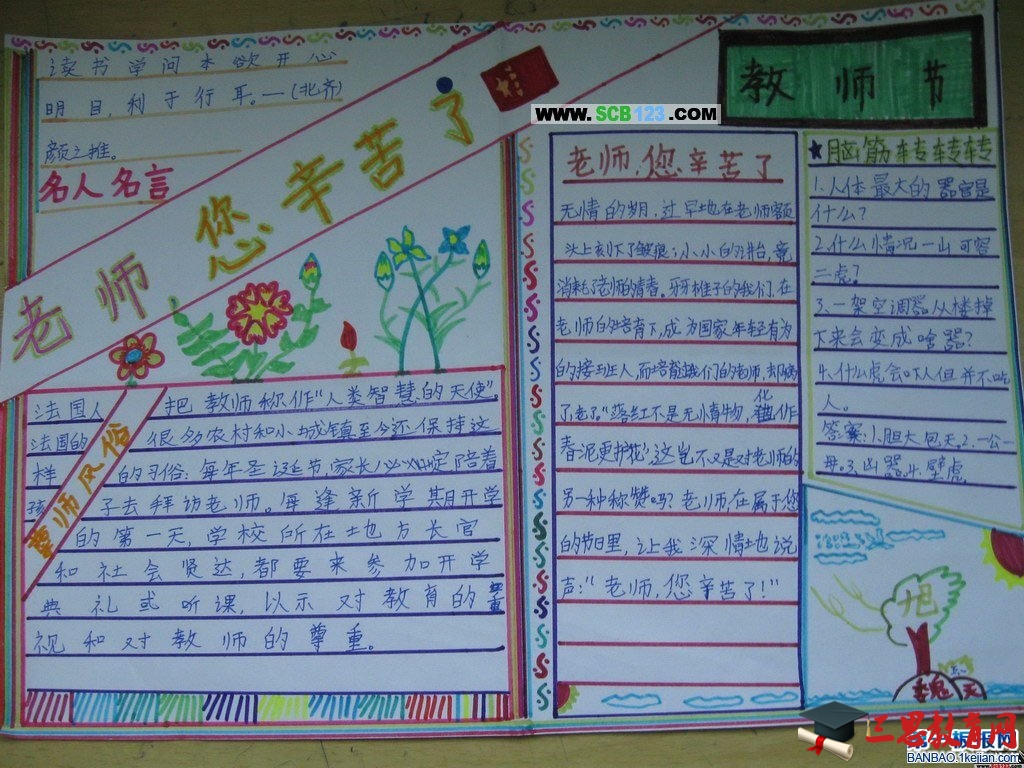 读书学问本欲开心
明目,利于行耳。—(北齐)
颜之推。
名人名言
老师您辛苦了
教师节
www.SCB123.com
法国人 把教师称作“人类智慧的天使”。
法国的 很多农村和小城镇至今还保持这
样 的习俗:每年圣诞节,家长必定陪着
孩 子去拜访老师。每逢新学期开学
的第一天,学校所在地方长官
和社会贤达,都要来参加开学
典礼或听课,以示对教育的重
视和对教师的尊重。
尊师风俗
老师,您辛苦了
无情的岁月,过早地在老师额
头上刻下了皱痕;小小的讲台,竟
消耗了老师的青春。牙牙稚子的我们,在
老师的培育下,成为国家年轻有为
的接班人,而培育我们的老师,
了老了。“落红不是无情物,化作
春泥更护花”,这岂不又是对老师的
另一种称赞吗?老师,在属于您
的节日里,让我深情地说
声:“老师,您辛苦了!”
脑筋转转转
1.人体最大的器官是
什么?
2.什么情况一山可容
二虎?
3.一架空调器从楼掉
下来会变成啥器?
4.什么虎会吓人但并不吃
人。
答案:1.胆大包天.2.一公一
母.3.凶器.4.壁虎
旭
魏天
三思教育网
BANBAO.1kejian.com